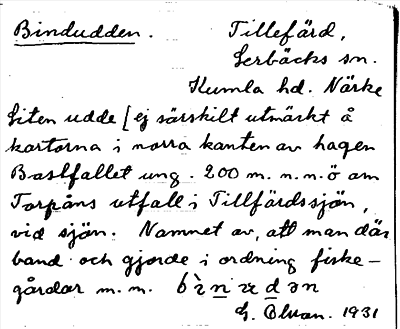 Bindudden. Tillefärd,
Lerbäcks sn.
Kumla hd. Närke
Liten udde [ej särskilt utmärkt å
kartorna i norra kanten av hagen
Bastfallet ung. 200 m. n.n.ö om
Torpåns utfall i Tillfärdssjön,
vid sjön. Namnet av, att man där
band och gjorde i ordning fiske-
gårdar m.m.
G. 1931